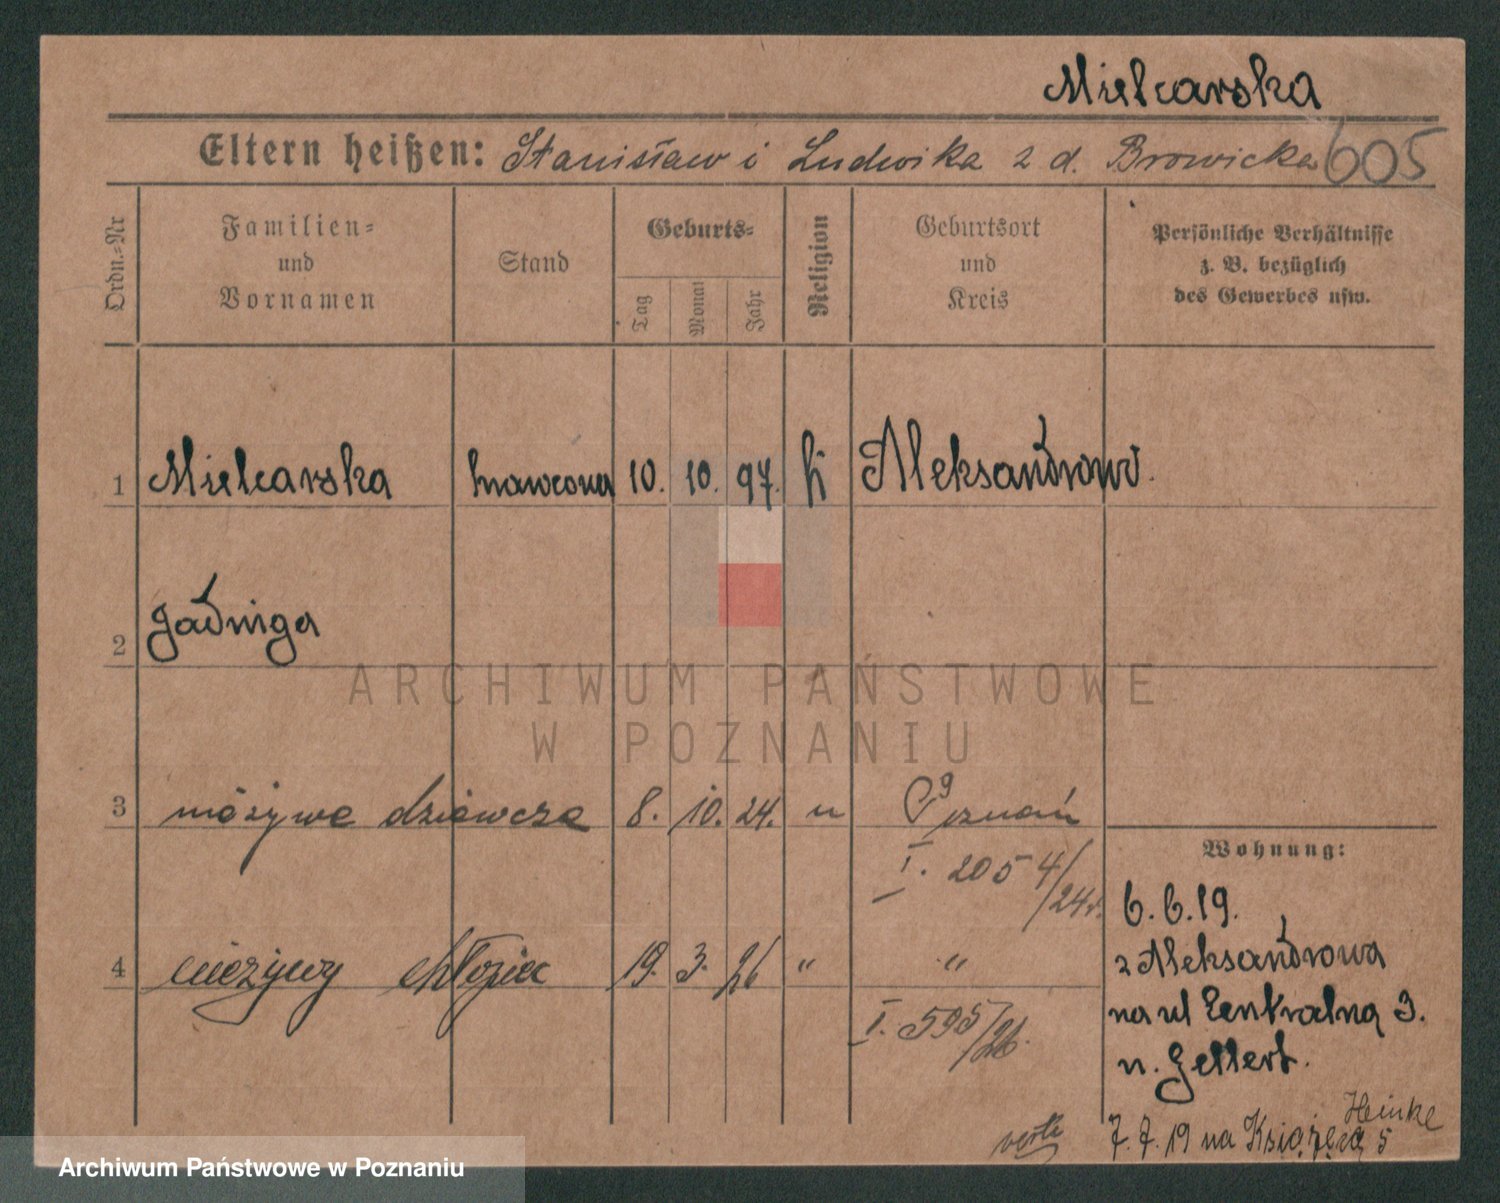 Mielcarska
Eltern heißen: Stanisław i Ludwika z d. Browicka 605
Ordn.-Nr
Familien-
und
Vornamen
Stand
Geburts-
Tag
Monat
Jahr
Religion
Geburtsort
und
Kreis
Persönliche Verhältnisse
z. B. bezüglich
des Gewerbes usw.
1 Mielcarska krawcowa 10. 10. 97. k Aleksandrowo.
2 Jadwiga
ARCHIWUM PAŃSTWOWE
W POZNANIU
3 nieżywe dziewcze 8. 10. 24. " Poznań
I. 2054/24
4 nieżywy chłopiec 19. 3. 26 " "
I. 595/26.
Wohnung:
6.6.19.
z Aleksandrowa
na ul Centralna 3.
u. Gellert.
Heinke
7.7.19 na Książęcą 5
verte
Archiwum Państwowe w Poznaniu